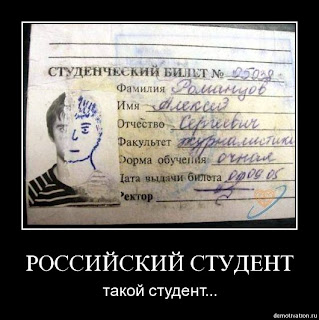 СТУДЕНЧЕСКИЙ БИЛЕТ № 25038
Фамилия Романцов
Имя Алексей
Отчество Сергеевич
Факультет журналистики
Форма обучения очная
Дата выдачи билета 01.09.05
Ректор
РОССИЙСКИЙ СТУДЕНТ
такой студент...
demotivation.ru